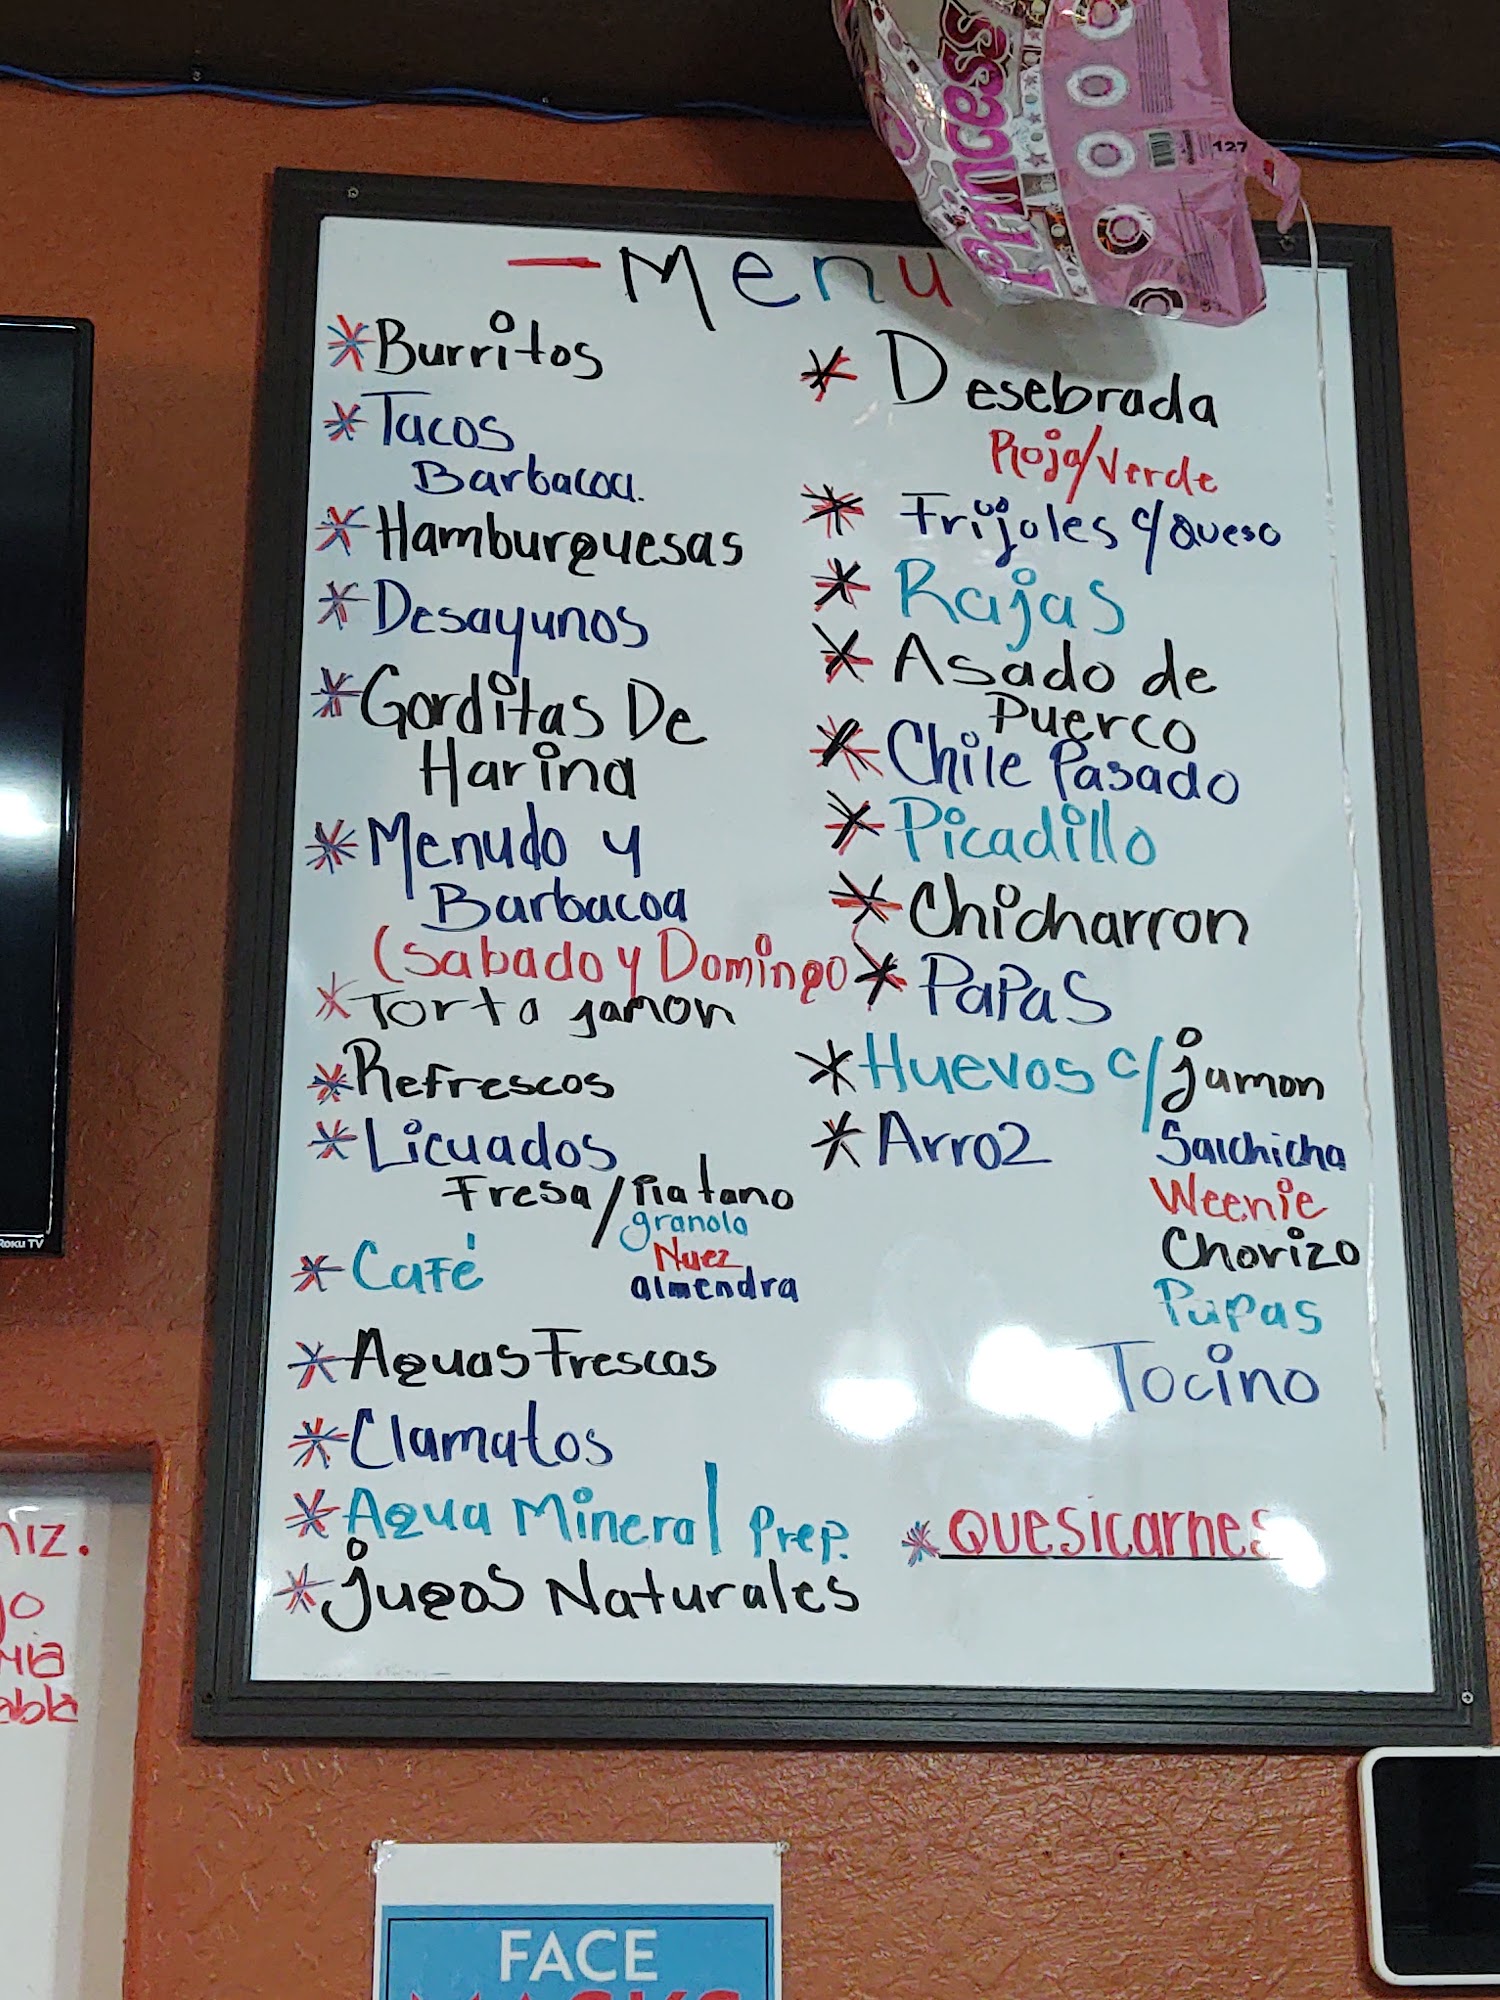 PRINCESS
127
- Menu
* Burritos
* Tacos
Barbacoa.
* Hamburguesas
* Desayunos
* Gorditas De
Harina
* Menudo y
Barbacoa
(Sabado y Domingo
* Torta jamon
* Refrescos
* Licuados
Fresa/Platano
granola
Nuez
almendra
* Café
* Aguas Frescas
* Clamatos
* Agua Mineral Prep.
* jugos Naturales
* Desebrada
Roja/Verde
* Frijoles c/Queso
* Rajas
* Asado de
Puerco
* Chile Pasado
* Picadillo
* Chicharron
* PaPaS
* Huevos c/jamon
Salchicha
Weenie
Chorizo
Papas
Tocino
* Arroz
* QUESiCarnes
Roku TV
FACE
MASKS